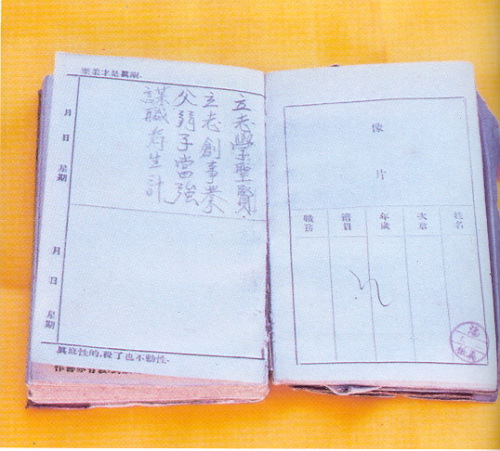 至柔才是眞剛.
月 日 星期
立志學聖賢.
立志創事業
父弱子當強
謀職為生計
月 日 星期
性的,殺了也不動性.
像
片
姓名
次章
年歲
籍貫
職務